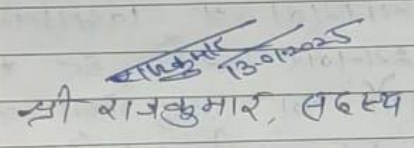 राजकुमार 13-01-2025
श्री राजकुमार, सदस्य